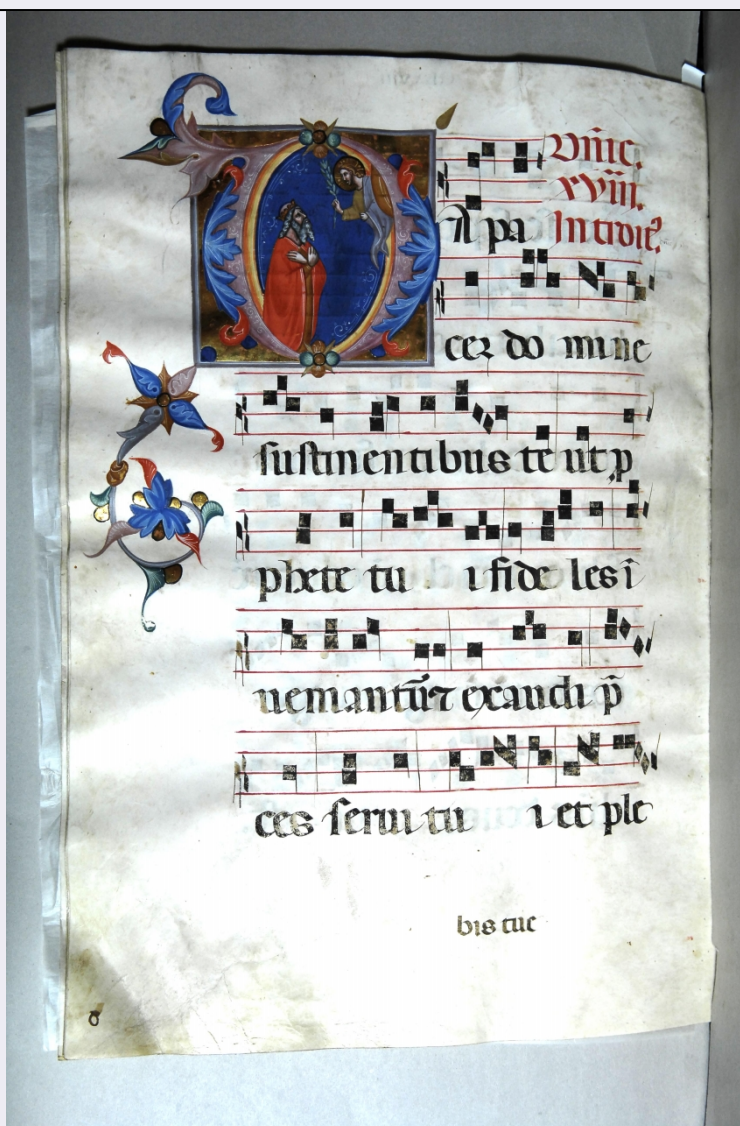 Dñic.
xviii.
Introit9
A pa
cez do mine
sustinentibus te ut p
phete tu i fide les ī
ueniantūr ⁊ exaudi p̄
ces serui tu i et ple
bis tue